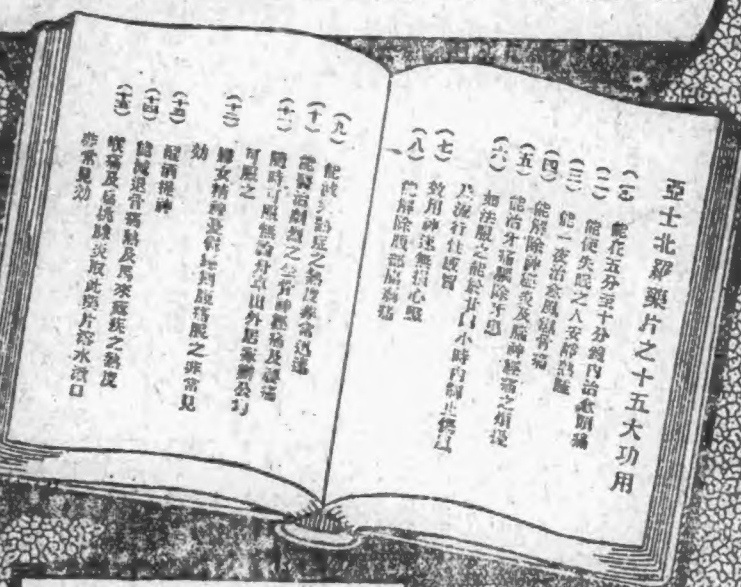 亞士北羅藥片之十五大功用
(一) 能在五分至十分鐘內治愈頭痛
(二) 能使失眠之人安靜熟睡
(三) 能一夜治愈風濕骨痛
(四) 能解除神經炎及腦神經痛之煩擾
(五) 能治牙痛驅除牙患
(六) 如法服之能於廿四小時內制止傷風
及流行性感冒
(七) 效用神速無損心臟
(八) 能解除腹部脹痛
(九) 能減少熱症之熱度非常迅速
(十) 能醫治劇烈之坐骨神經痛及
(十一) 隨時可服無論舟車出外居家辦公均
可服之
(十二) 婦女精神及經痛服之非常見
効
(十三) 醒酒提神
(十四) 能減退骨痛熱及馬來瘧疾之熱度
(十五) 喉痛及扁桃腺炎取此藥片溶水漱口
非常見効